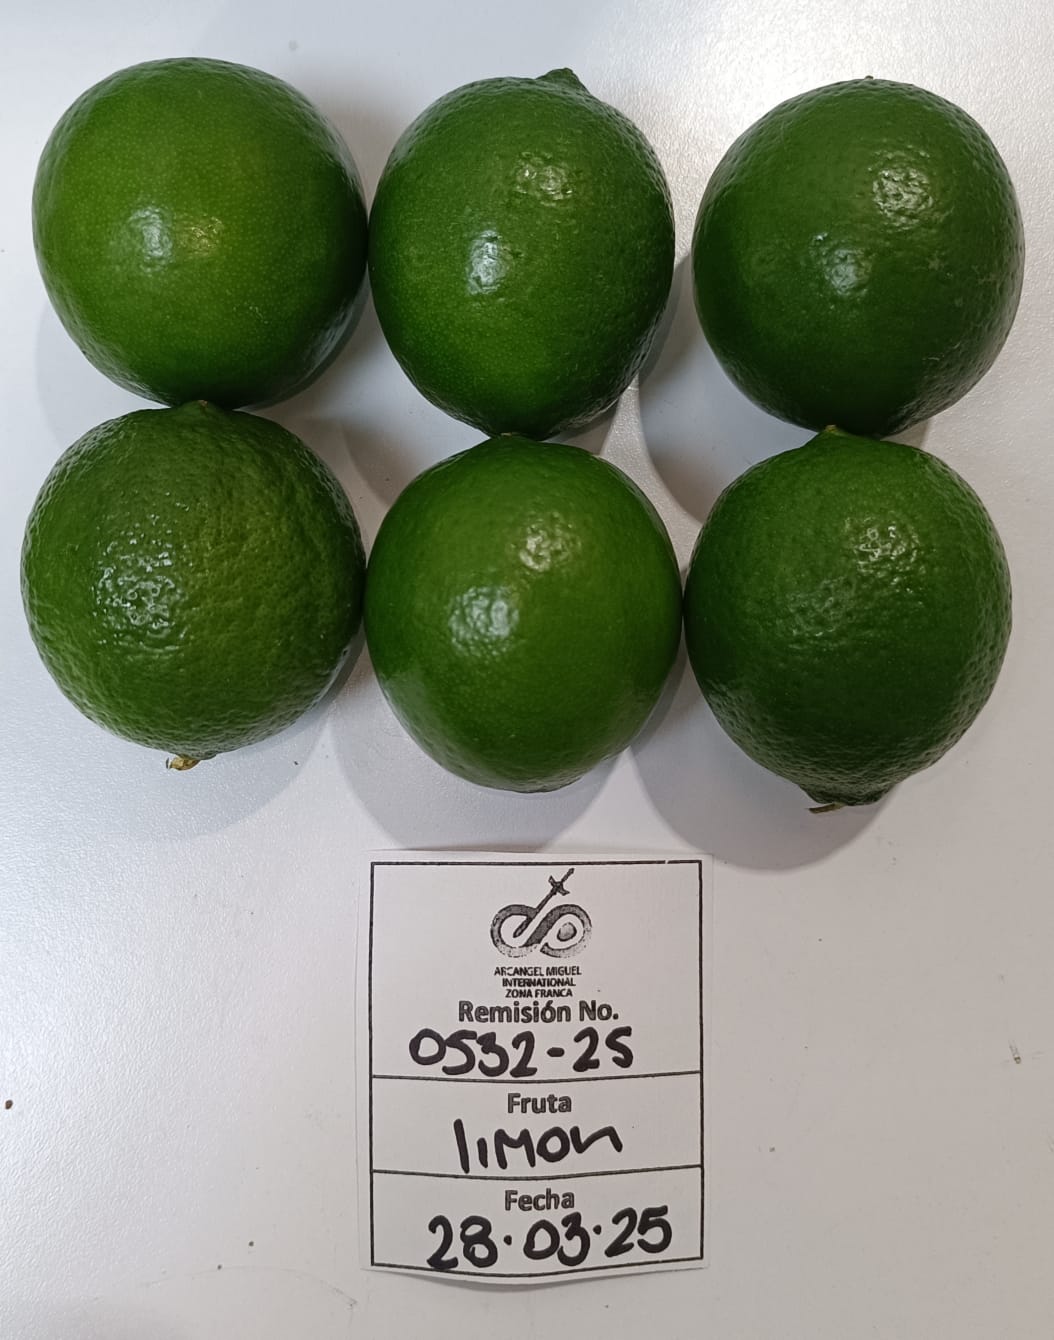 ARCANGEL MIGUEL
INTERNATIONAL
ZONA FRANCA
Remisión No.
0532-25
Fruta
limon
Fecha
28.03.25